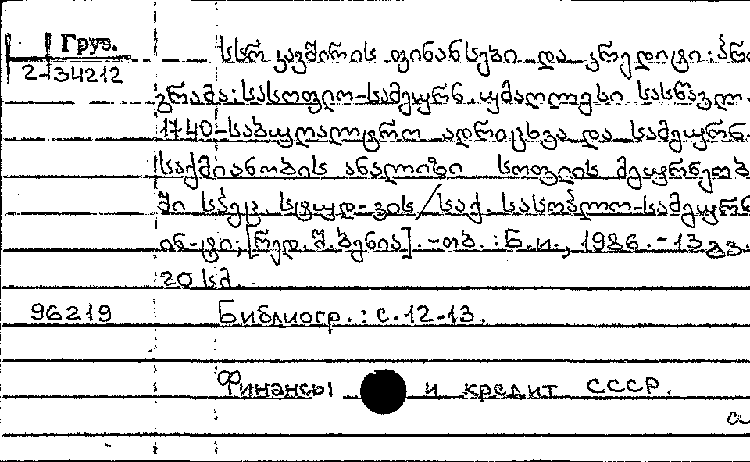 Груз.
2-34212
სსრ კავშირის ფინანსები და კრედიტი: პრო
გრამა: სასოფლო-სამეურნ. უმაღლესი სასწავლ.
1740-საბუღალტრო აღრიცხვა და სამეურნ.
საქმიანობის ანალიზი სოფლის მეურნეობ
ში სპეც. სტუდ-ვის / საქ. სასოფლო-სამეურნ.
ინ-ტი; [რედ. შ. ბენია]. - თბ. : Б. и., 1986. - 13 გვ.
20 სმ.
96219
Библиогр.: с. 12-13.
Финансы и кредит СССР.